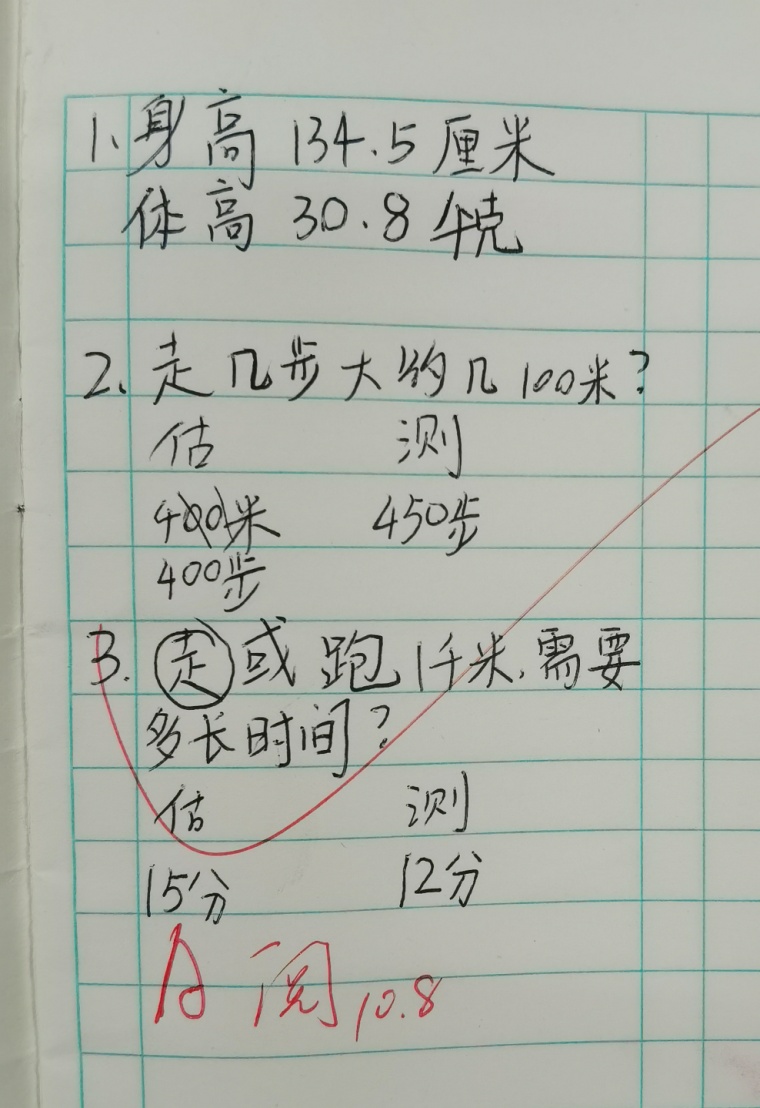 1、身高 134.5厘米
体高 30.8千克
2. 走几步大约几100米?
估 测
400米 450步
400步
3. 走或跑1千米,需要
多长时间?
估 测
15分 12分
A 阅 10.8